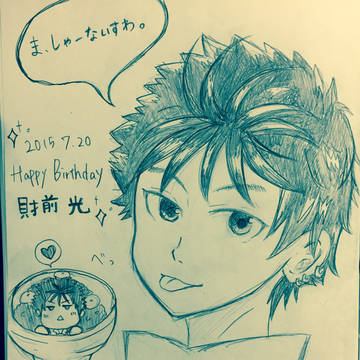 ま、しゃーないすわ。
2015.7.20
Happy Birthday
財前 光
べっ